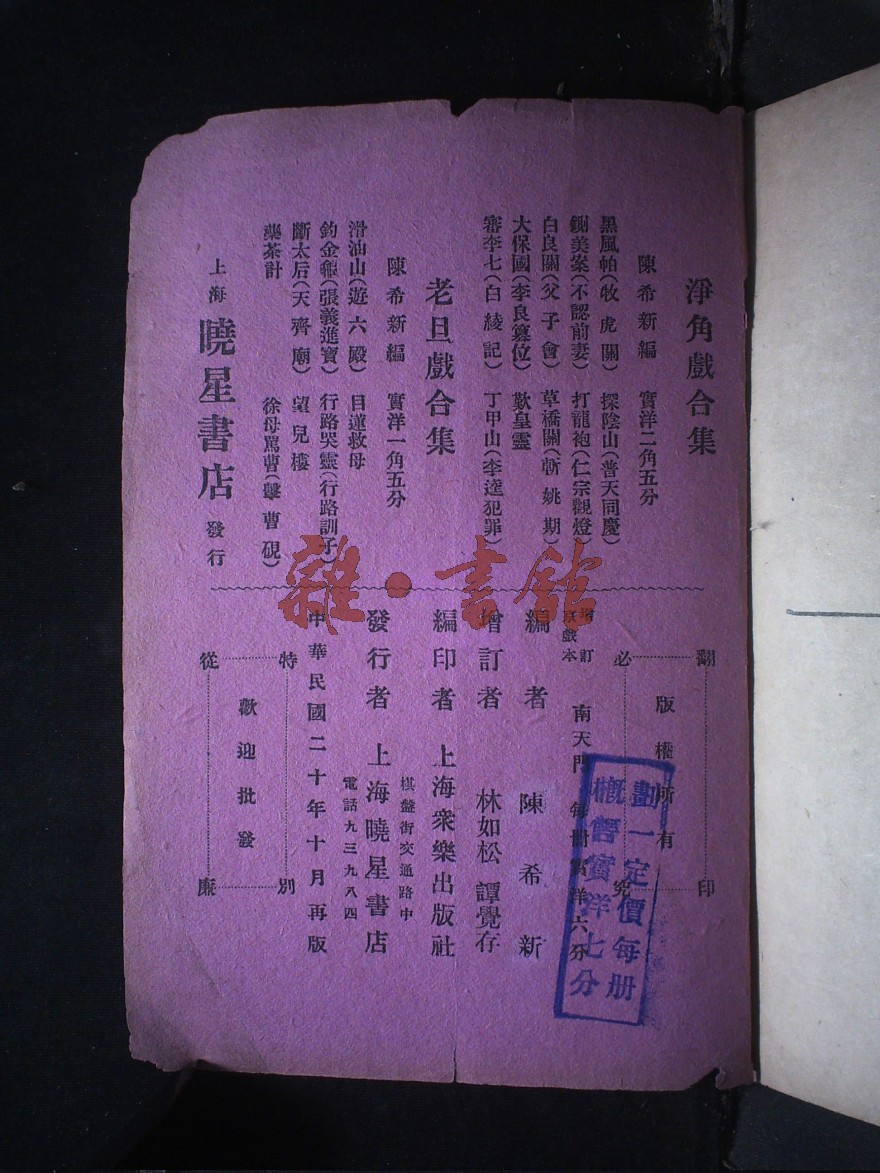 淨角戲合集
陳希新編 實洋二角五分
黑風帕(牧虎關) 探陰山(普天同慶)
鍘美案(不認前妻) 打龍袍(仁宗觀燈)
白良關(父子會) 草橋關(斬姚期)
大保國(李良篡位) 歎皇靈
審李七(白綾記) 丁甲山(李逵犯罪)
老旦戲合集
陳希新編 實洋一角五分
滑油山(遊六殿) 目蓮救母
釣金龜(張義進寶) 行路哭靈(行路訓子)
斷太后(天齊廟) 望兒樓
藥茶計 徐母罵曹(擊曹硯)
上海曉星書店發行
翻印必究
版權所有
增訂京戲本 南天門 每冊實洋六分
編者 陳希新
增訂者 林如松 譚覺存
編印者 上海衆樂出版社
發行者 上海曉星書店
棋盤街交通路中
電話九三九八四
中華民國二十年十月再版
特別從廉
歡迎批發
劃一定價每册
概售實洋七分
雜·書館